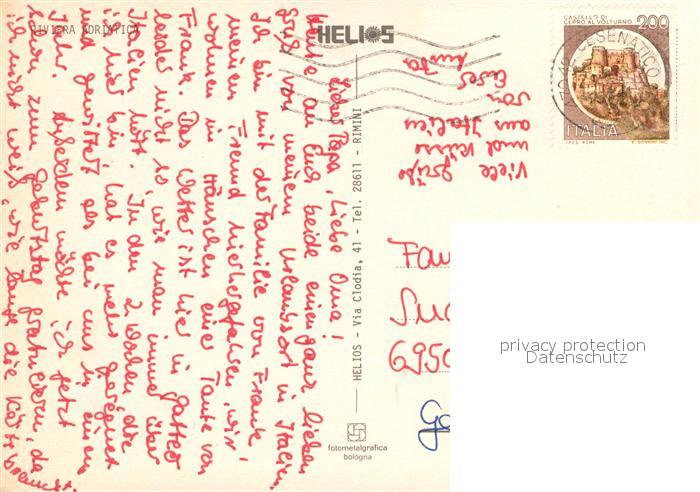 RIVIERA ADRIATICA
HELIOS
Lieber Papa, liebe Oma!
Möchte an Euch beide einen ganz lieben
Gruß von meinem Urlaubsort in Italien
Ich bin mit der Familie von Frank,
meinem Freund hierhergefahren, wir
wohnen im Häuschen einer Tante von
Frank. Das Wetter ist hier in Gatteo
leider nicht so, wie man immer über
Italien hört. In den 2 Wochen die
ich hier bin, hat es mehr geregnet
und gewittert als bei uns in einem
Jahr. Außerdem möchte ich jetzt
schon zum Geburtstag gratulieren, da
ich nicht weiß, wie lange die Karte braucht.
Viele Grüße
und Küsse
aus Italien
von
Eurer
HELIOS - Via Clodia, 41 - Tel. 28611 - RIMINI
fotometalgrafica
bologna
CASTELLO DI
CERRO AL VOLTURNO
200
ITALIA
CESENATICO
Fam
6950
privacy protection
Datenschutz